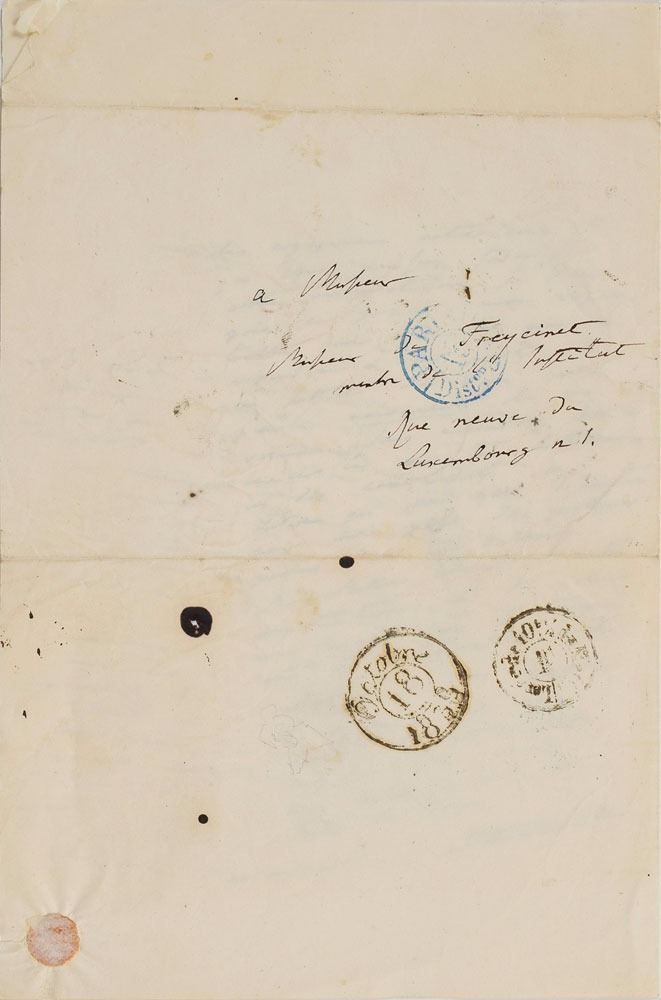 a Monsieur
Monsieur de Freycinet
membre de l' Institut
Rue neuve du
Luxembourg n 1.
PAR
Dist
Octobre
18
18